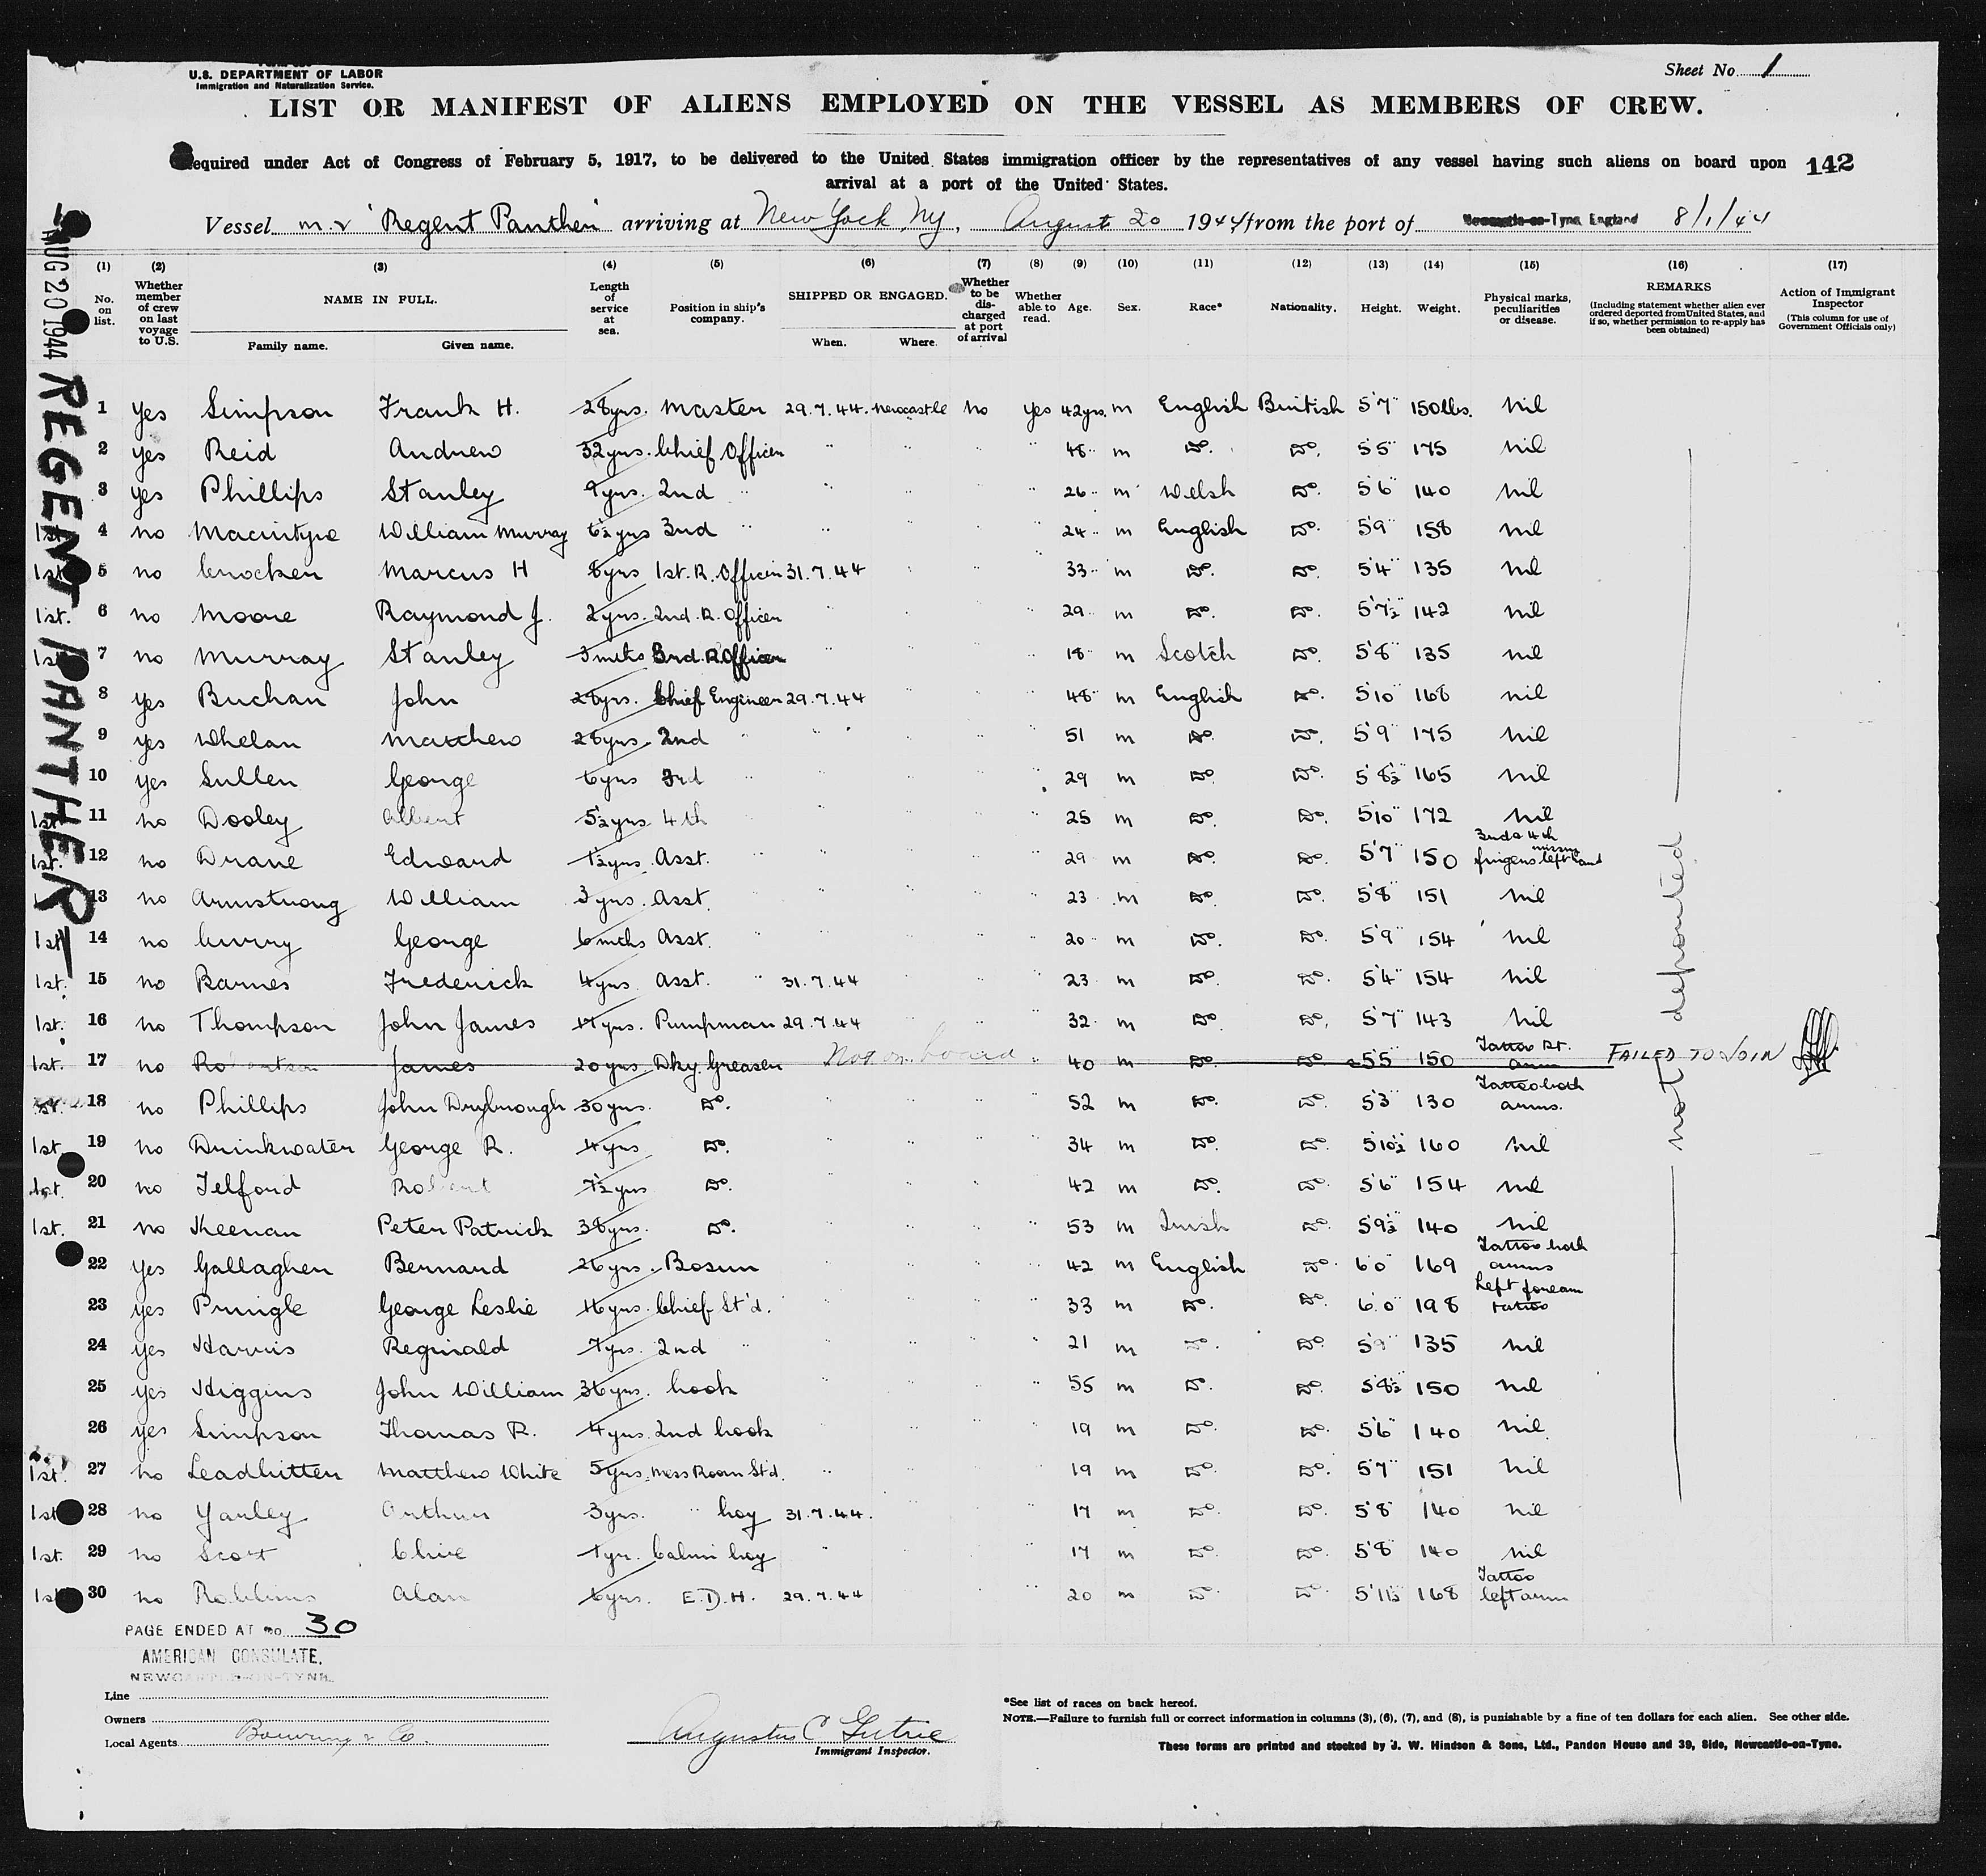 U.S. DEPARTMENT OF LABOR
Immigration and Naturalization Service.
Sheet No. 1
LIST OR MANIFEST OF ALIENS EMPLOYED ON THE VESSEL AS MEMBERS OF CREW.
Required under Act of Congress of February 5, 1917, to be delivered to the United States immigration officer by the representatives of any vessel having such aliens on board upon 142
arrival at a port of the United States.
Vessel m.v "Regent Panther" arriving at New York, NY, August 20 1944 from the port of Newcastle-on-Tyne, England 8/1/44
AUG 20 1944 REGENT PANTHER
(1) (2) (3) (4) (5) (6) (7) (8) (9) (10) (11) (12) (13) (14) (15) (16) (17)
No. on list. Whether member of crew on last voyage to U.S. NAME IN FULL. Family name. Given name. Length of service at sea. Position in ship's company. SHIPPED OR ENGAGED. When. Where. Whether to be discharged at port of arrival Whether able to read. Age. Sex. Race* Nationality. Height. Weight. Physical marks, peculiarities or disease. REMARKS (Including statement whether alien ever ordered deported from United States, and if so, whether permission to re-apply has been obtained) Action of Immigrant Inspector (This column for use of Government Officials only)
1 yes Simpson Frank H. 28yrs. Master 29.7.44. Newcastle No yes 42yrs. m English British 5'7" 150lbs. Nil
2 yes Reid Andrew 32yrs. Chief Officer " " " " 48 " m Do. Do. 5'5" 175 Nil
3 yes Phillips Stanley 9yrs. 2nd " " " " " 26 " m Welsh Do. 5'6" 140 Nil
1st 4 no Macintyre William Murray 6½yrs 3rd " " " " " 24 " m English Do. 5'9" 158 Nil
1st 5 no Crocker Marcus H 8yrs 1st. R. Officer 31.7.44 " " " 33 " m Do. Do. 5'4" 135 Nil
1st. 6 no Moore Raymond J. 2yrs. 2nd. R. Officer " " " " 29 " m Do. Do. 5'7½" 142 Nil
1st 7 no Murray Stanley 3 mths 3rd. R. Officer " " " " 18 " m Scotch Do. 5'8" 135 Nil
8 yes Buchan John 28yrs. Chief Engineer 29.7.44 " " " 48 " m English Do. 5'10" 168 Nil
9 yes Whelan Matthew 28yrs. 2nd " " " " " 51 m Do. Do. 5'9" 175 Nil
10 yes Sullen George 6yrs 3rd " " " " " 29 m Do. Do. 5'8½" 165 Nil
1st 11 no Dooley Albert 5½yrs 4th " " " " " 25 m Do. Do. 5'10" 172 Nil
1st. 12 no Drane Edward 1½yrs. Asst. " " " " " 29 m Do. Do. 5'7" 150 3rd & 4th fingers left hand missing
13 no Armstrong William 3yrs. Asst. " " " " " 23 m Do. Do. 5'8" 151 Nil
1st 14 no Curry George 6mths Asst. " " " " " 20 " m Do. Do. 5'9" 154 Nil
1st. 15 no Barnes Frederick 4yrs Asst. " 31.7.44 " " " 23 m Do. Do. 5'4" 154 Nil
1st. 16 no Thompson John James 17yrs. Pumpman 29.7.44 " " " 32 m Do. Do. 5'7" 143 Nil
1st. 17 no Robertson James 20yrs Dky Greaser Not on board " 40 m Do. Do. 5'5" 150 Tattoo Rt. arm FAILED TO JOIN
18 no Phillips John Drybrough 30yrs. Do. " " " " 52 m Do. Do. 5'3" 130 Tattoo both arms.
1st. 19 no Drinkwater George R. 4yrs Do. " " " " 34 m Do. Do. 5'10½" 160 Nil
1st. 20 no Telford Robert 7½yrs Do. " " " " 42 m Do. Do. 5'6" 154 Nil
1st. 21 no Keenan Peter Patrick 38yrs. Do. " " " " 53 m Irish Do. 5'9½" 140 Nil
22 yes Gallagher Bernard 26yrs. Bosun " " " " 42 m English Do. 6'0" 169 Tattoo both arms
23 yes Pringle George Leslie 16yrs. Chief St'd. " " " " 33 m Do. Do. 6'.0" 198 Left forearm tattoo
24 yes Harris Reginald 7yrs. 2nd " " " " " 21 m Do. Do. 5'9" 135 Nil
25 yes Higgins John William 36yrs. Cook " " " " 55 m Do. Do. 5'8½" 150 Nil
26 yes Simpson Thomas R. 4yrs. 2nd Cook " " " " 19 m Do. Do. 5'6" 140 Nil
1st. 27 no Leadbitter Matthew White 5yrs. Mess Room St'd. " " " " 19 m Do. Do. 5'7" 151 Nil
1st 28 no Yarley Arthur 3yrs. " boy 31.7.44. " " " 17 m Do. Do. 5'8" 140 Nil
1st. 29 no Scott Clive 1yr. Cabin boy " " " " 17 m Do. Do. 5'8" 140 Nil
1st 30 no Robbins Alan 6yrs. E.D.H. 29.7.44 " " " 20 m Do. Do. 5'11½" 168 Tattoo left arm
not deported
PAGE ENDED AT No. 30
AMERICAN CONSULATE,
NEWCASTLE-ON-TYNE.
Line
Owners
Local Agents Bowring & Co.
Augustus C Gutrie
Immigrant Inspector.
*See list of races on back hereof.
NOTE.—Failure to furnish full or correct information in columns (3), (6), (7), and (8), is punishable by a fine of ten dollars for each alien. See other side.
These forms are printed and stocked by J. W. Hindson & Sons, Ltd., Pandon House and 39, Side, Newcastle-on-Tyne.